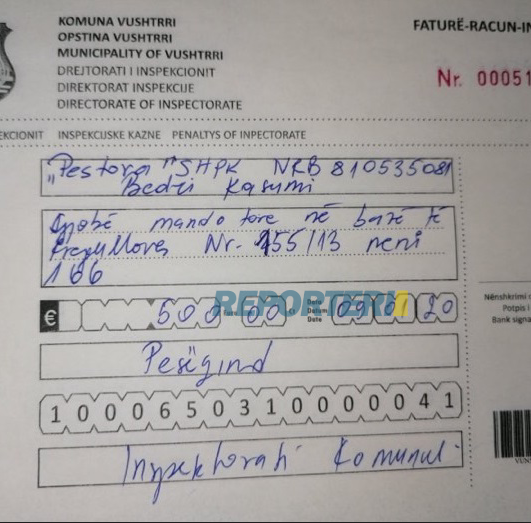 KOMUNA VUSHTRRI
OPSTINA VUSHTRRI
MUNICIPALITY OF VUSHTRRI
DREJTORATI I INSPEKCIONIT
DIREKTORAT INSPEKCIJE
DIRECTORATE OF INSPECTORATE
FATURË-RACUN-IN
Nr. 00051
EKCIONIT INSPEKCIJSKE KAZNE PENALTYS OF INPECTORATE
"Pestova" SHPK NRB 810535081
Bedri Kasumi
Gjobë mandatore në bazë të
Rregullores Nr. 455/13 neni
166
€ 500 00 Date Datum Date 09 01 20
REPORTERI
Nënshkrimi
Potpis i
Bank signa
Pesëqind
1000650310000041
Inspektorati Komunal